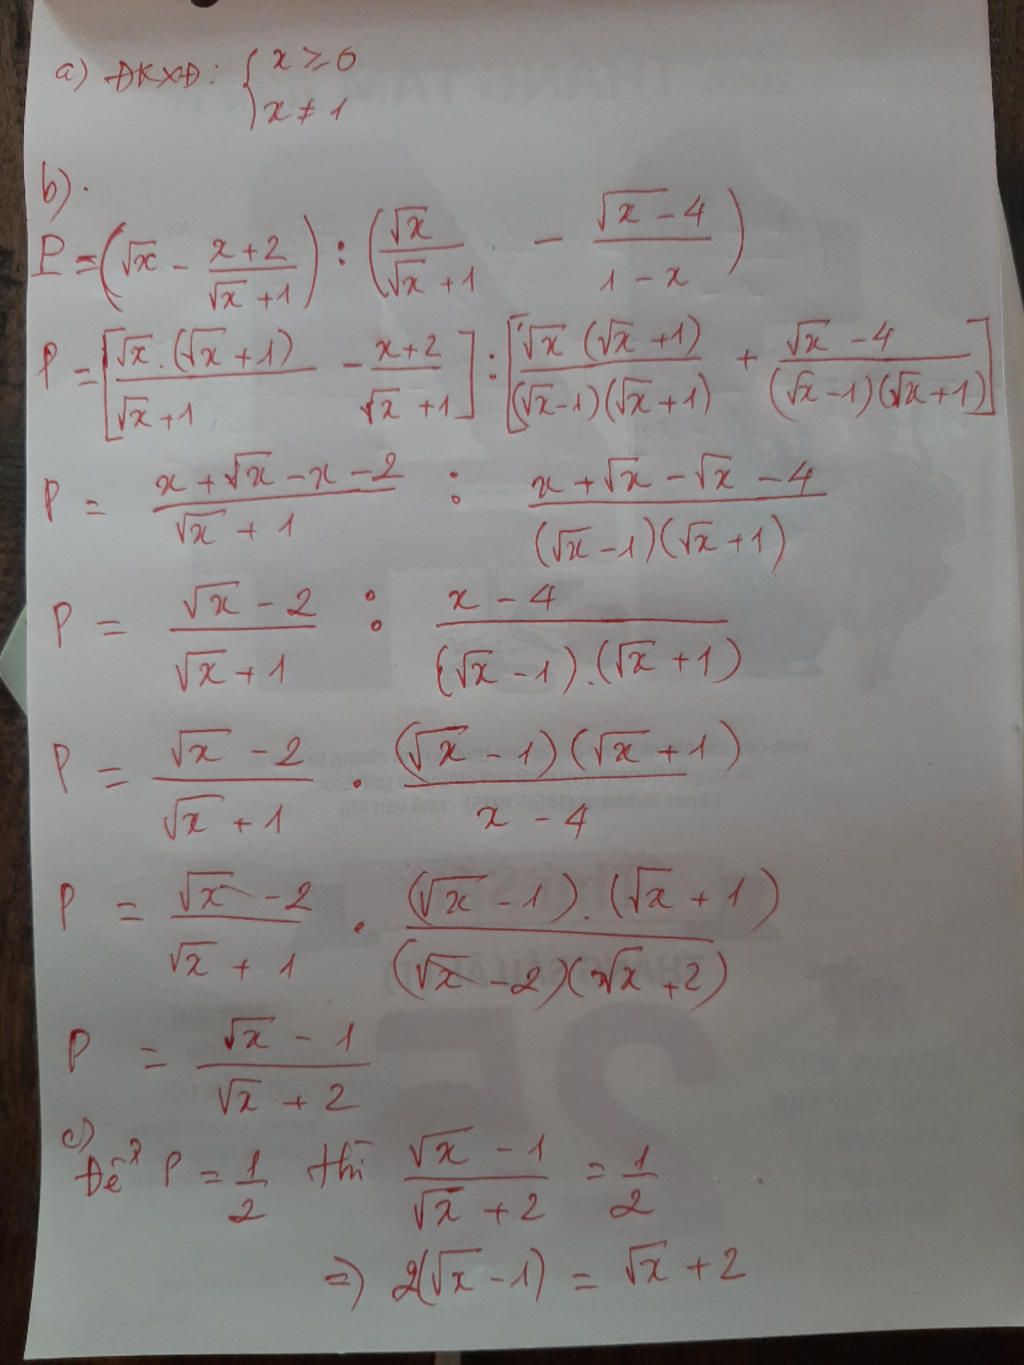 a) ĐKXĐ: { x ≥ 0
x ≠ 1
b).
P = (√x - (x+2)/(√x+1)) : (√x/(√x+1) - (√x-4)/(1-x))
P = [√x.(√x+1)/(√x+1) - (x+2)/(√x+1)] : [√x(√x+1)/((√x-1)(√x+1)) + (√x-4)/((√x-1)(√x+1))]
P = (x+√x-x-2)/(√x+1) : (x+√x-√x-4)/((√x-1)(√x+1))
P = (√x-2)/(√x+1) : (x-4)/((√x-1).(√x+1))
P = (√x-2)/(√x+1) . (√x-1)(√x+1)/(x-4)
P = (√x-2)/(√x+1) . (√x-1).(√x+1)/((√x-2)(√x+2))
P = (√x-1)/(√x+2)
c)
Để P = 1/2 thì (√x-1)/(√x+2) = 1/2
=> 2(√x-1) = √x+2